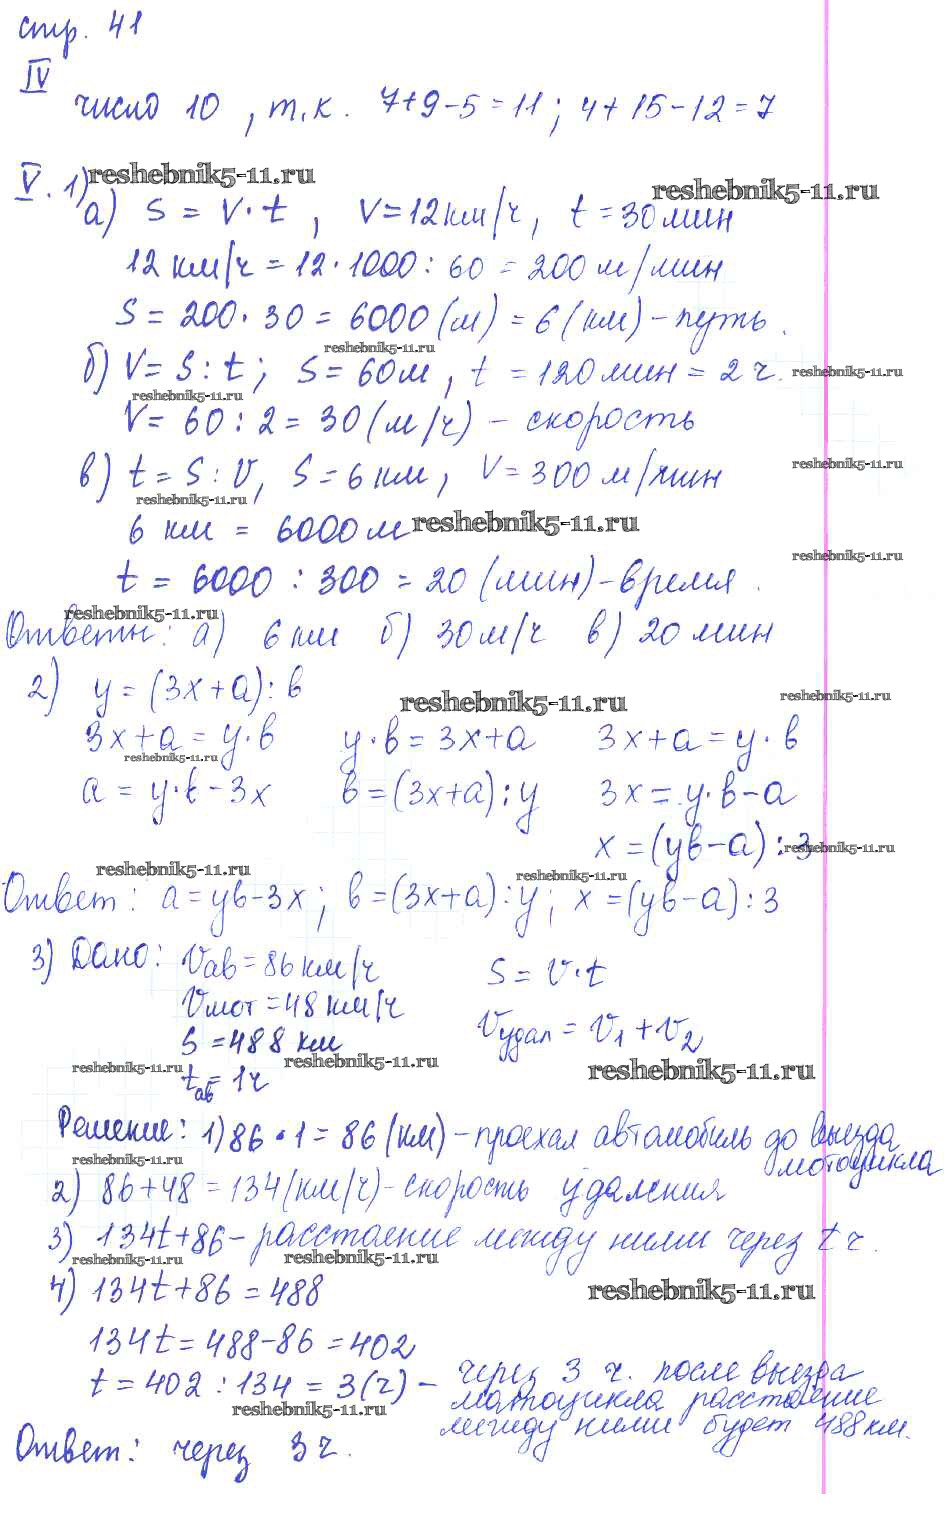 стр. 41
IV
число 10, т.к. 7+9-5=11; 4+15-12=7
reshebnik5-11.ru
V. 1)
reshebnik5-11.ru
а) S = V·t, V=12км/ч, t=30мин
12 км/ч = 12·1000:60 = 200 м/мин
S = 200·30 = 6000(м) = 6(км) - путь.
reshebnik5-11.ru
б) V = S:t; S=60м, t = 120мин = 2 ч.
reshebnik5-11.ru
reshebnik5-11.ru
V = 60:2 = 30(м/ч) - скорость
reshebnik5-11.ru
в) t = S:V, S=6км, V=300м/мин
reshebnik5-11.ru
6 км = 6000м
reshebnik5-11.ru
reshebnik5-11.ru
t = 6000:300 = 20(мин) - время.
reshebnik5-11.ru
Ответы: а) 6км б) 30м/ч в) 20мин
2) y = (3x+a):в
reshebnik5-11.ru
reshebnik5-11.ru
3x+a = y·в y·в = 3x+a 3x+a = y·в
reshebnik5-11.ru
a = y·в - 3x в = (3x+a):y 3x = y·в-a
x = (yв-a):3
reshebnik5-11.ru
reshebnik5-11.ru
reshebnik5-11.ru
Ответ: a = yв-3x; в = (3x+a):y; x = (yв-a):3
3) Дано: Vав = 86км/ч S = V·t
Vмот = 48км/ч Vудал = V1 + V2
S = 488 км
reshebnik5-11.ru
reshebnik5-11.ru
reshebnik5-11.ru
tав = 1ч
Решение: 1) 86·1 = 86(км) - проехал автомобиль до выезда
мотоцикла
reshebnik5-11.ru
2) 86+48 = 134(км/ч) - скорость удаления
3) 134t+86 - расстояние между ними через t ч.
reshebnik5-11.ru
reshebnik5-11.ru
4) 134t+86 = 488
reshebnik5-11.ru
134t = 488-86 = 402
t = 402:134 = 3(ч) - через 3 ч. после выезда
мотоцикла расстояние
reshebnik5-11.ru
между ними будет 488км.
Ответ: через 3ч.